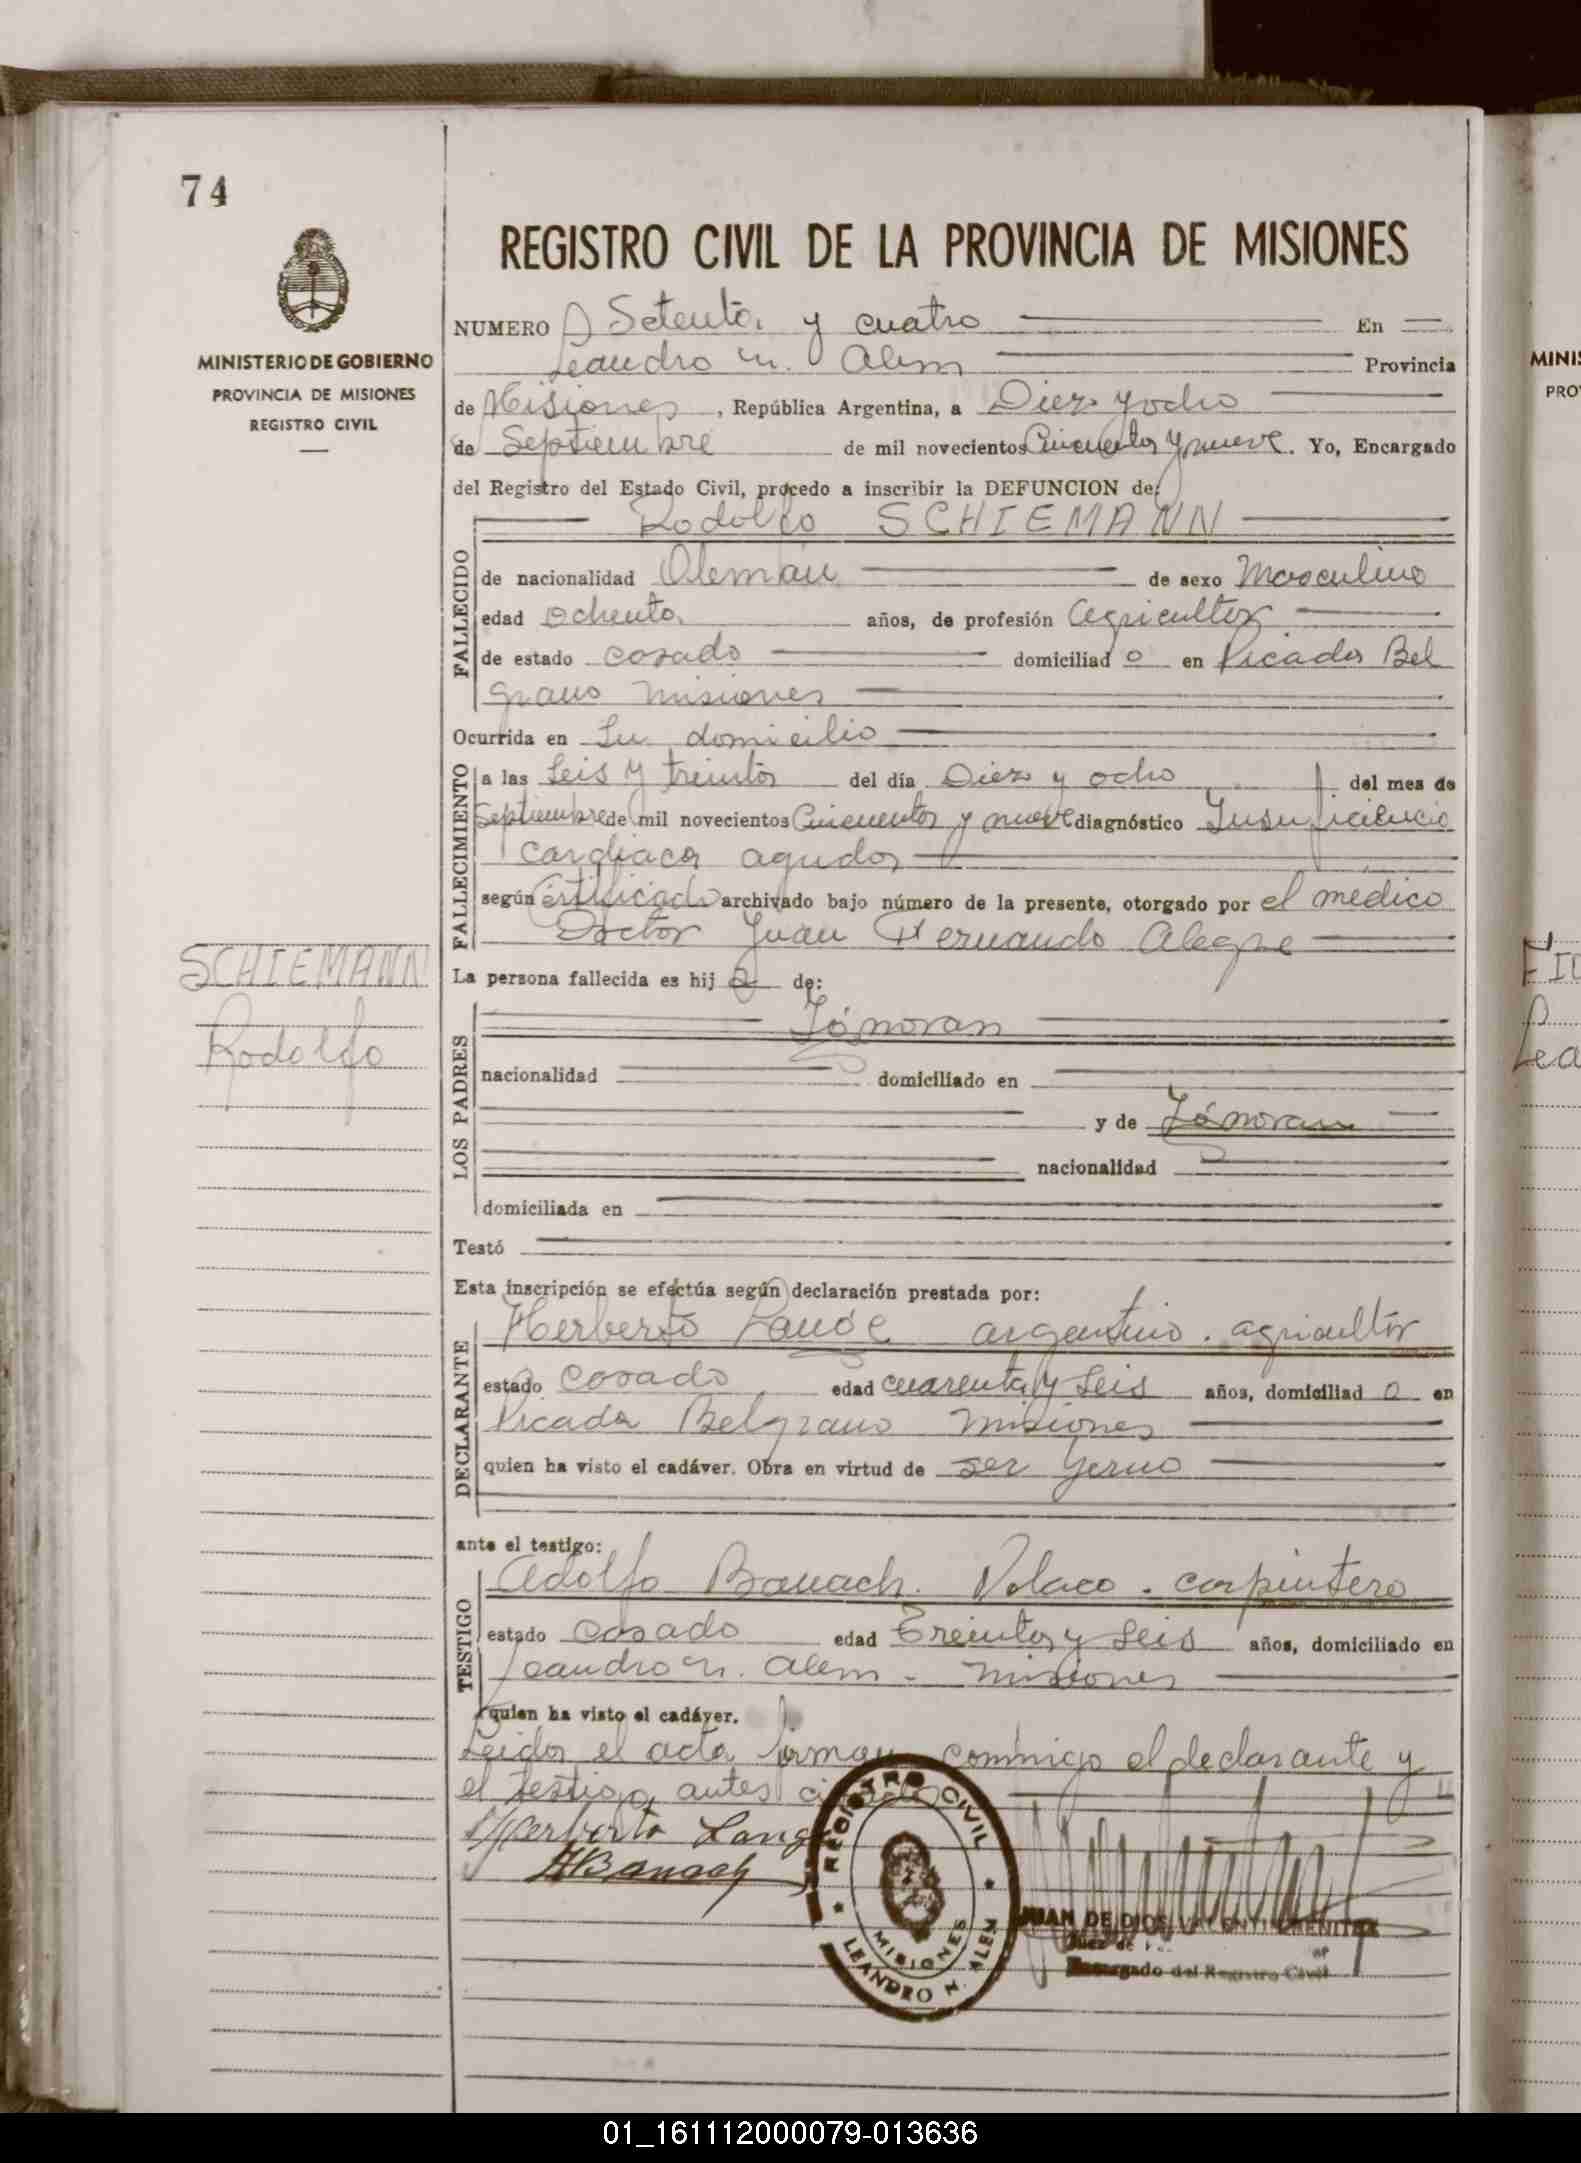 74
REGISTRO CIVIL DE LA PROVINCIA DE MISIONES
MINISTERIO DE GOBIERNO
PROVINCIA DE MISIONES
REGISTRO CIVIL
NUMERO Setenta y cuatro En
Leandro N. Alem Provincia
de Misiones, República Argentina, a Diez y ocho
de Septiembre de mil novecientos Cincuenta y nueve. Yo, Encargado
del Registro del Estado Civil, procedo a inscribir la DEFUNCION de:
Rodolfo SCHIEMANN
FALLECIDO
de nacionalidad Alemán de sexo Masculino
edad Ochenta años, de profesión Agricultor
de estado casado domiciliad o en Picada Bel
grano Misiones
Ocurrida en Su domicilio
FALLECIMIENTO
a las Seis y treinta del día Diez y ocho del mes de
Septiembre de mil novecientos Cincuenta y nueve diagnóstico Insuficiencia
Cardiaca aguda
según Certificado archivado bajo número de la presente, otorgado por el médico
Doctor Juan Fernando Alegre
SCHIEMANN
Rodolfo
La persona fallecida es hij o de:
LOS PADRES
Ignoran
nacionalidad domiciliado en
y de Ignoran
nacionalidad
domiciliada en
Testó
Esta inscripción se efectúa según declaración prestada por:
DECLARANTE
Herberto Lange argentino. agricultor
estado Casado edad cuarenta y Seis años, domiciliad o en
Picada Belgrano Misiones
quien ha visto el cadáver. Obra en virtud de ser yerno
ante el testigo:
TESTIGO
Adolfo Banach. Polaco. carpintero
estado Casado edad Treinta y Seis años, domiciliado en
Leandro N. Alem - Misiones
quien ha visto el cadáver.
Leida el acta firman conmigo el declarante y
el testigo antes citados
Herberto Lange
ABanach
REGISTRO CIVIL
MISIONES
LEANDRO N. ALEM
JUAN DE DIOS VALENTIN BENITEZ
Juez de
Encargado del Registro Civil
MINIS
PRO
FIC
Lea
01_161112000079-013636